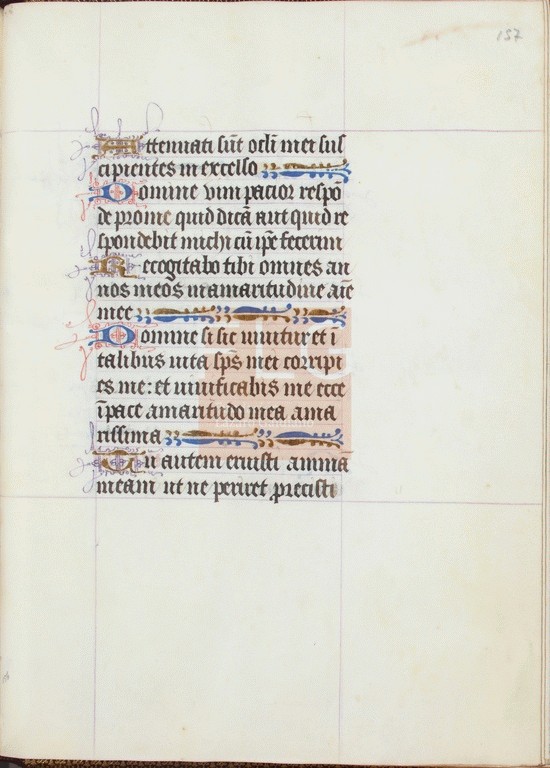 157
Attenuati sūt oclī mei sus
cipientes in excelso
Domine vim pacior respō
de pro me quid dicā aut quid re
spondebit michi cū ip̄e fecerim
Recogitabo tibi omnes an
nos meos in amaritudine aīe
mee
Domine si sic uiuitur et ī
talibus uita sp̄s mei corripi
es me: et uiuificabis me ecce
ī pace amaritudo mea ama
rissima
Tu autem eruisti anima
meam ut ne periret proiecisti